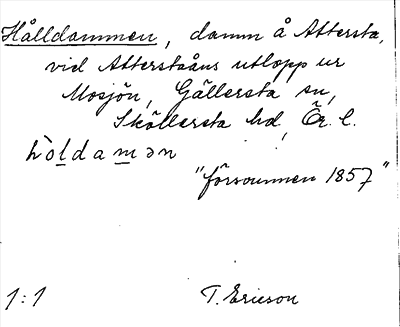 Hålldammen, damm å Attersta,
vid Atterstaåns utlopp ur
Mosjön, Gällersta sn,
Sköllersta hd, Ör. l.
hòldamən
"försvunnen 1857"
1:1 T. Ericson